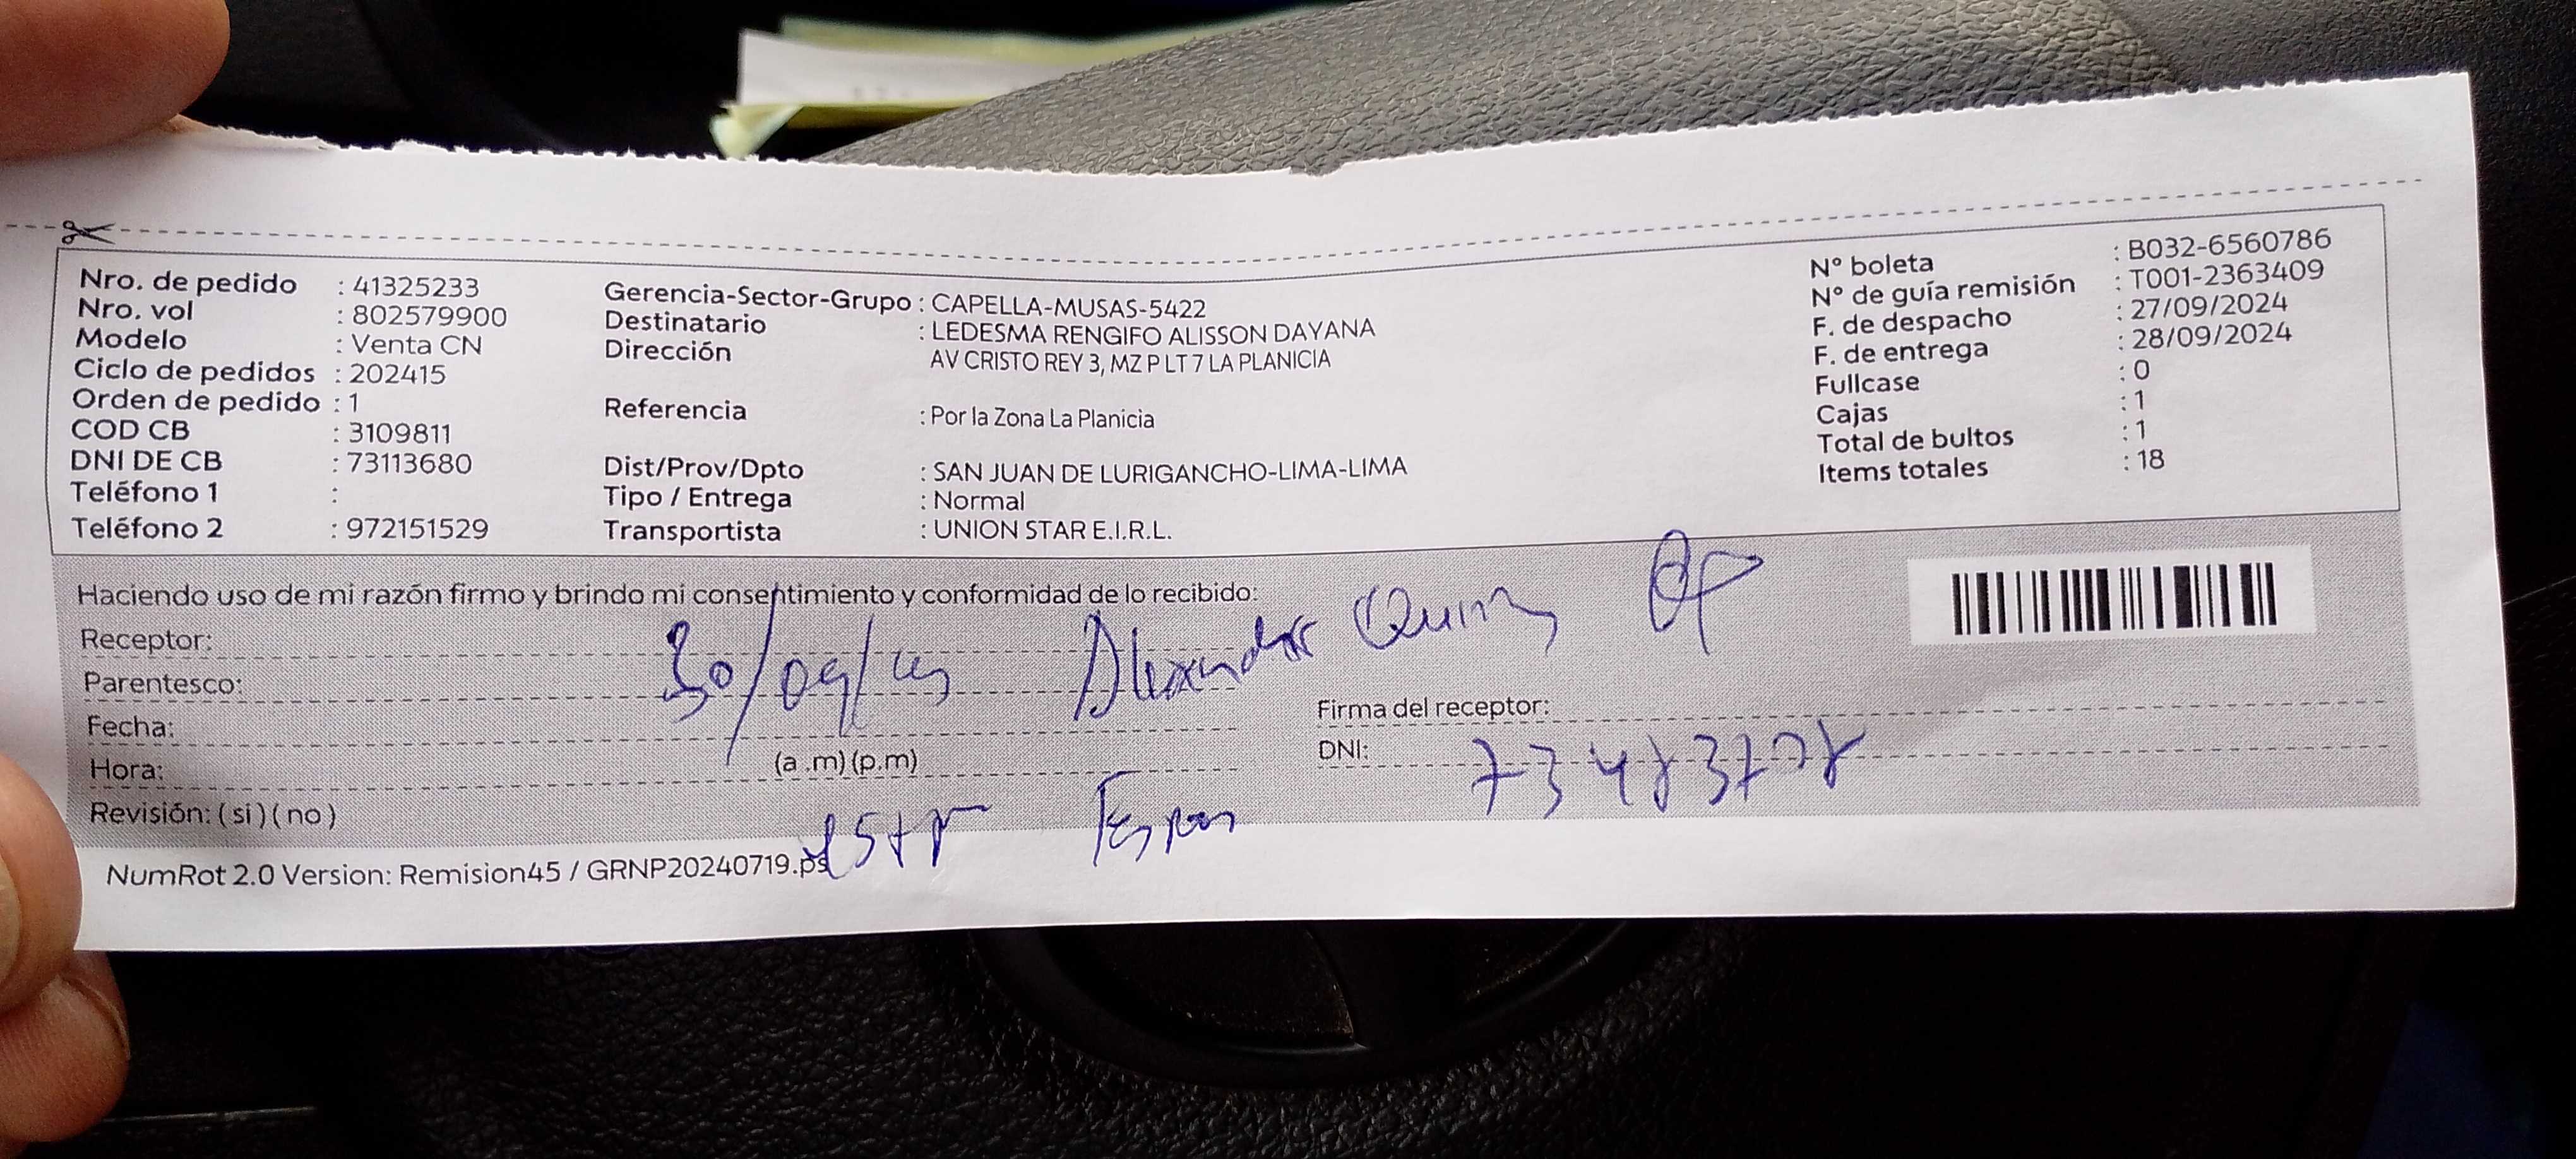 Nro. de pedido : 41325233
Nro. vol : 802579900
Modelo : Venta CN
Ciclo de pedidos : 202415
Orden de pedido : 1
COD CB : 3109811
DNI DE CB : 73113680
Teléfono 1 :
Teléfono 2 : 972151529
Gerencia-Sector-Grupo : CAPELLA-MUSAS-5422
Destinatario : LEDESMA RENGIFO ALISSON DAYANA
Dirección AV CRISTO REY 3, MZ P LT 7 LA PLANICIA
Referencia : Por la Zona La Planicia
Dist/Prov/Dpto : SAN JUAN DE LURIGANCHO-LIMA-LIMA
Tipo / Entrega : Normal
Transportista : UNION STAR E.I.R.L.
N° boleta : B032-6560786
N° de guía remisión : T001-2363409
F. de despacho : 27/09/2024
F. de entrega : 28/09/2024
Fullcase : 0
Cajas : 1
Total de bultos : 1
Items totales : 18
Haciendo uso de mi razón firmo y brindo mi consentimiento y conformidad de lo recibido:
Receptor:
Alexander
Parentesco:
30/09/
Fecha:
Hora: (a .m) (p.m)
Revisión: ( si ) ( no )
Firma del receptor:
DNI:
NumRot 2.0 Version: Remision45 / GRNP20240719.ps